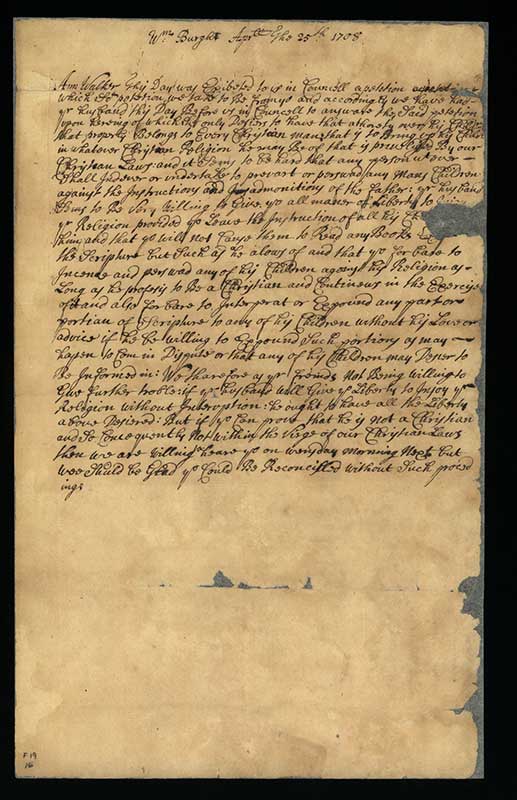 Wms Burght Aprll the 25th 1708
Ann Walker this Day was Exibeted to us in Councell a petition
which sd petition we take to Be from ys and accordingly we have had
yr husband this Day Before us in Councell to answare the Said petition
upon hereing of which he only Desiers to have that athority over his
that properly Belongs to Every Christian man that is to Bring up his
in whatever Christian Religion he may Be of that is previlidged By our
Christian Laws and it Seems to be hard that any person whatever
Shall hinder or undertake to prevart or perswad any mans Children
against the Instructions and admonitions of the Father: yr husband
Seems to Be Very willing to Give yo all maner of Liberty to
yr Religion provided yo Leave the Instruction of all his
him and that yo will not Cause them to Read any Books
the Scripture but Such as he alows of and that yo forbare to
Incence and perswad any of his Children against his Religion as
Long as he profess to Be a Christian and Contineues in the Exercise
of it and also forbare to Interperat or Expound any part or
portion of Scripture to any of his Children without his Love or
advice if he be willing to Expound Such portions as may
hapen to Com in Dispute or that any of his Children may Desier to
Be Informed in: We tharefore as yr freinds Not Being willing to
Give further troble: if yr husband will Give yo Liberty to Injoy yr
Religion without Interoption: he ought to have all the Liberty
above Desiered: But if yo Can prove that he is not a Christian
and So Concequently Not within the Virge of our Christian Laws
then we are willing heare yo on wensday morning Next but
wee Should be Glad yo Could Be Reconcilled without Such proced
ings
F19
16